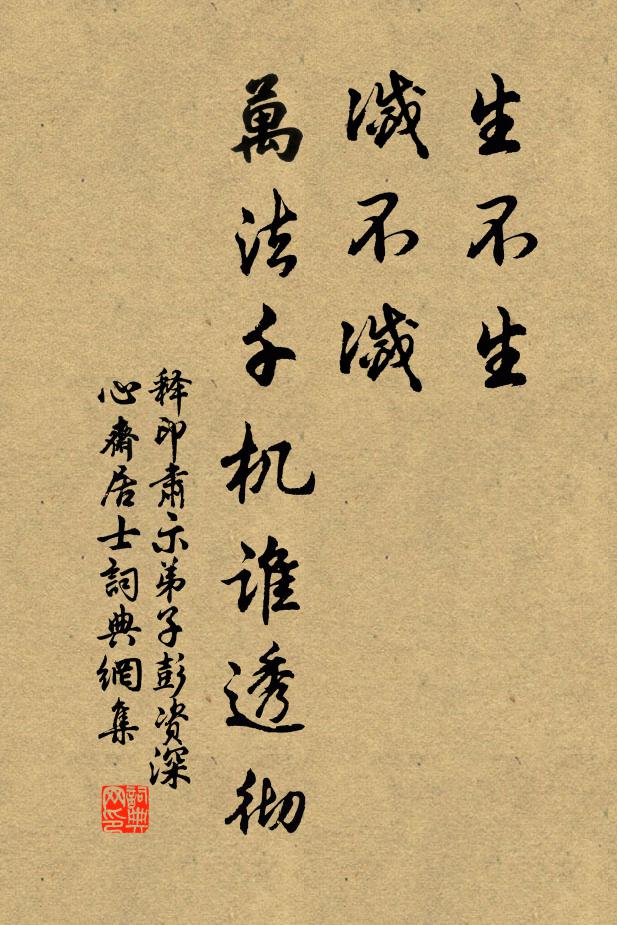 生不生
滅不滅
萬法千机誰透彻
释印肃示弟子彭资深
心齋居士詞典網集
詞典网印